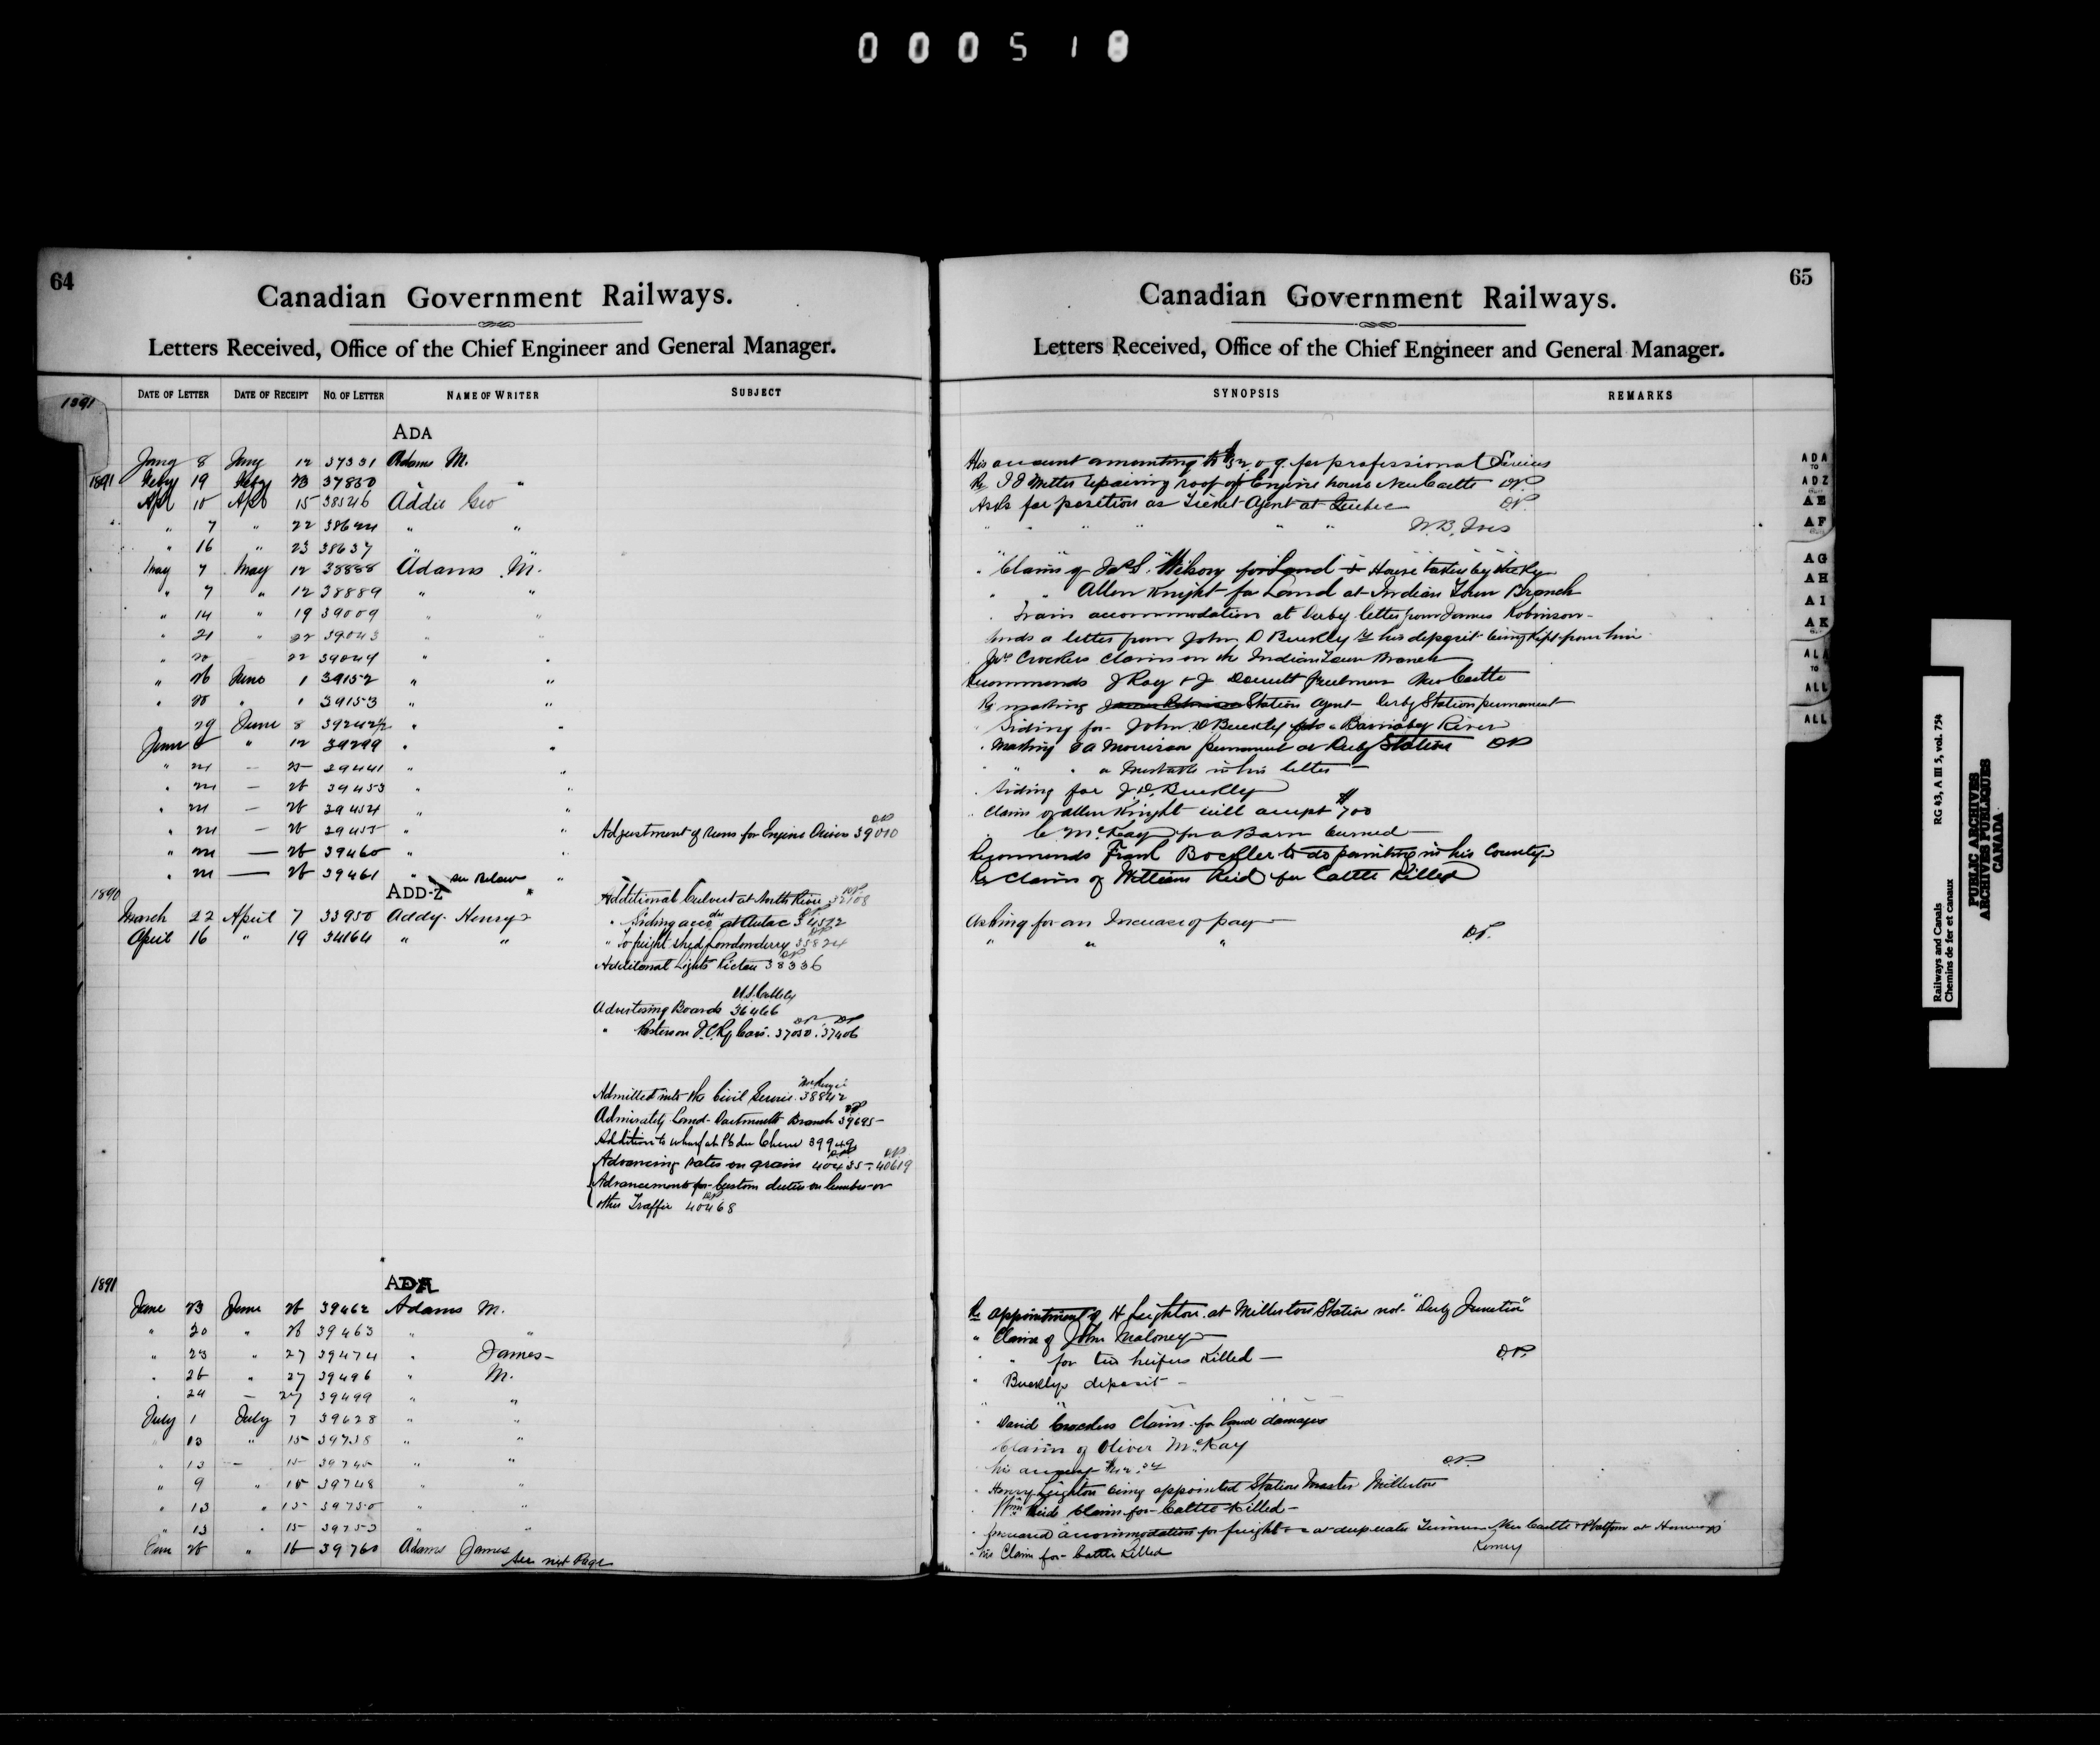 000518
64
Canadian Government Railways.
Letters Received, Office of the Chief Engineer and General Manager.
DATE OF LETTER DATE OF RECEIPT NO. OF LETTER NAME OF WRITER SUBJECT
1891
ADA
Jany 8 Jany 12 37331 Adams M.
1891 Feby 19 Feby 23 37830 " "
Apl 10 Apl 15 38546 Addie Geo
" 7 " 22 38624 " "
" 16 " 23 38637 " "
May 7 May 12 38888 Adams M.
" 7 " 12 38889 " "
" 14 " 19 39009 " "
" 21 " 22 39043 " "
" 20 22 39049 " "
" 26 June 1 39152 " "
" 28 " 1 39153 " "
" 29 June 8 39242½ " "
June 8 " 12 39299 " "
" 24 — 25 39441 " "
" 24 — 26 39453 " "
" 24 — 26 39454 " "
" 24 — 26 39455 " " Adjustment of runs for Engine Drivers 39010 DP
" 24 — 26 39460 " "
" 24 — 26 39461 " see Below "
1890 ADD-Z
Additional Culvert at North River 32108 DP
March 22 April 7 33950 Addy Henry
" Siding acco du at Aulac 34572
April 16 " 19 34164 " "
" To freight shed Londonderry 35824
Additional Lights Pictou 38336
Advertising Boards 36466
" Posters on I.C.Ry Cars. 37030. 37406 DP DP
Admitted into the Civil Service. 38842
Admiralty Land - Dartmouth Branch 39695 DP
Addition to wharf at Pt du Chene 39949
Advancing rates on grain 40435. 40619 DP DP
Advancements for Custom duties on lumber or
other Traffic 40468 DP
1891 ADA
June 23 June 26 39462 Adams M.
" 20 " 26 39463 " "
" 23 " 27 39474 " James
" 26 " 27 39496 " M.
" 24 — 27 39499 " "
July 1 July 7 39628 " "
" 13 " 15 39738 " "
" 13 — 15 39745 " "
" 9 " 15 39748 " "
" 13 " 15 39750 " "
" 13 " 15 39753 " "
June 26 " 16 39760 Adams James
See next Page
65
Canadian Government Railways.
Letters Received, Office of the Chief Engineer and General Manager.
SYNOPSIS REMARKS
His account amounting to for professional Services
Re repairing roof of Engine house New Castle DP
Asks for position as Ticket Agent at Quebec DP
" " " " " W.B. Ives
" Claim of Wilson for Land & House taken by the Ry
" " Allen Knight for Land at Indian Town Branch
" Train accommodation at Derby letter from James Robinson
Sends a letter from John D Buckley re his deposit being kept from him
" Crockers claim on the Indian Town Branch
Recommends J Ray & J New Castle
Re making Station Agent Derby Station permanent
" Siding for John D Buckley Barnaby River
" Making permanent at Derby Station DP
" " a mistake in his letter
" Siding for J.D. Buckley
" Claim of Allen Knight will accept $700
" " McKay for a Barn burned
Recommends Frank to do painting in his County
Re Claim of William Reid for Cattle Killed
Asking for an Increase of pay
" " " D.P.
Re appointment of H Leighton at Millerton Station not "Derby Junction"
" Claim of John Maloney
" " for two heifers killed — D.P.
" Buckleys deposit
" " "
" David Crockers Claim for land damages
Claim of Oliver McKay
" his D.P.
" Henry Leighton being appointed Station Master Millerton
" Wm Reids Claim for Cattle Killed
" accommodation for freight at deep water Terminus New Castle & Platform at
" his Claim for Cattle Killed
ADA TO ADZ
AE
AF
AG
AH
AI
AK
ALA TO ALL
ALL
Railways and Canals RG 43, A III 5, vol. 754
Chemins de fer et canaux
PUBLIC ARCHIVES
ARCHIVES PUBLIQUES
CANADA